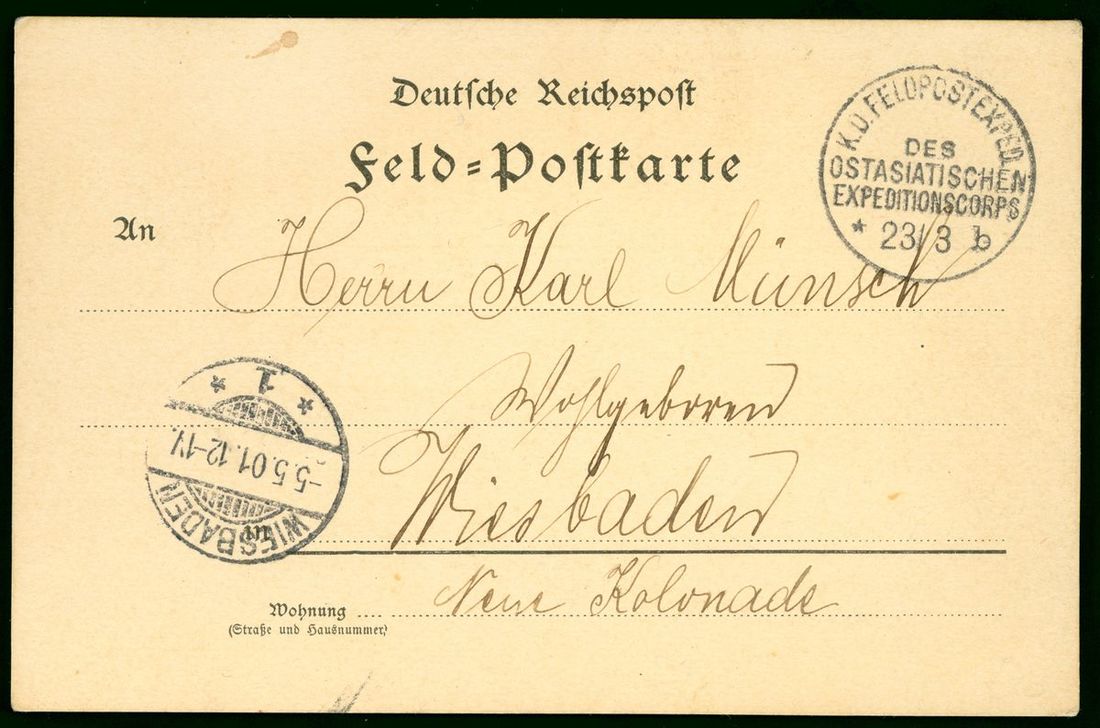 Deutsche Reichspost
Feld=Postkarte
K.D. FELDPOSTEXPED.
DES
OSTASIATISCHEN
EXPEDITIONSCORPS
* 23/3 b
An
Herrn Karl Münsch
Wohlgeboren
in Wiesbaden
Wohnung Neue Kolonade
(Straße und Hausnummer)
* 1 *
-5.5.01.12-1V.
WIESBADEN